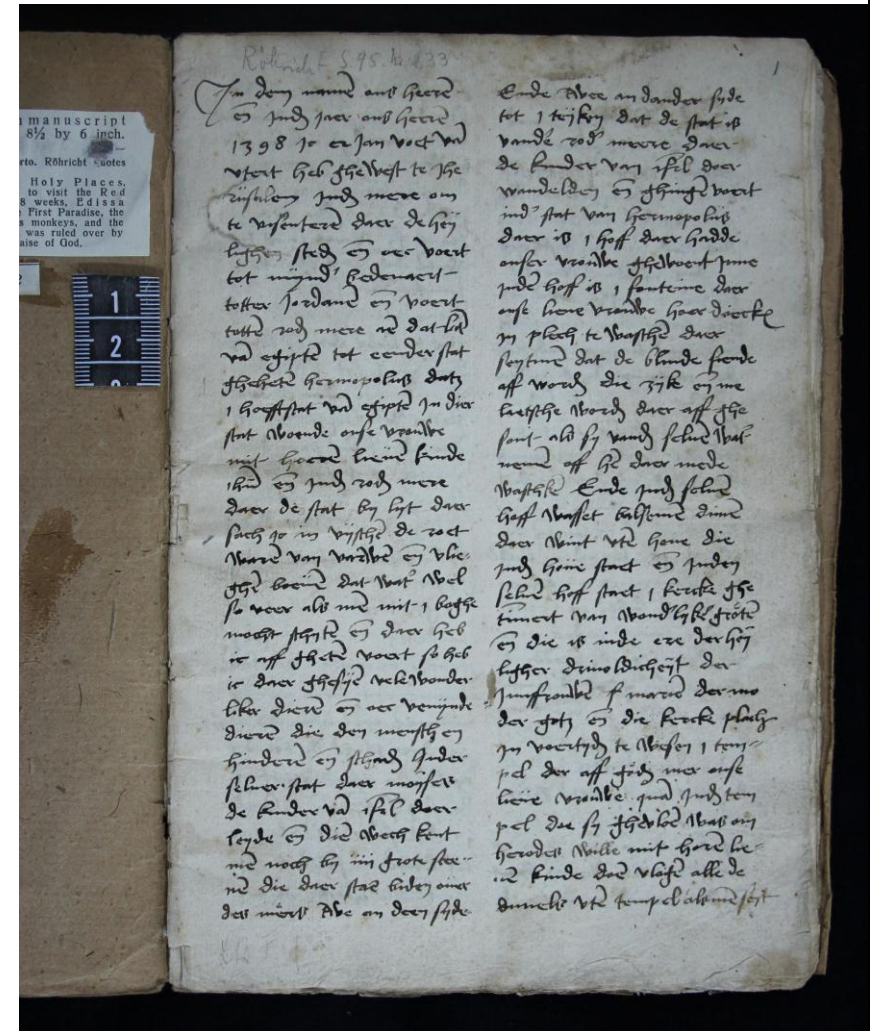 Röhricht S. 95. No 133
1
manuscript
8½ by 6 inch.
rto. Röhricht quotes
Holy Places,
to visit the Red
8 weeks, Edissa
First Paradise, the
s monkeys, and the
was ruled over by
aise of God.
1
2
In dem namen ons heeren
eñ Indz jaer ons heeren
1398 ic er Jan voet vā
vtert heb ghewest te Jhe
rusalem Indz mere om
te visenteren daer de hey
lighen stedē eñ oec voert
tot mynd' bedevaert
totter Jordanē eñ voert
totten rodz mere eñ dat lāt
vā egiptē tot eender stat
ghehetē hermopolus datz
1 hoeftstat vā egiptē In dier
stat woende onse vrouwe
mit hoeren lieuē kinde
ihū eñ Indz rodz mere
daer de stat by lyt daer
sach ic in visschē de roet
waren van varwen eñ vlie
ghē boeuē dat wat' wel
so veer als mē mit 1 boghe
mocht schytē eñ daer heb
ic aff ghetē voert so heb
ic daer ghesyē vele wonder
liker dierē eñ oec venynde
dierē die den menschen
hinderē eñ schadz Inder
seluer stat daer moyses
de kinder vā isrl doer
leyde eñ diē wech kent
mē noch by iiii grote stee
nē die daer staē biden ouer
des meers twe an deen syde
Ende twee an dander syde
tot 1 teyken dat de stat is
vandē rod' meere daer
de kinder van isrl doer
wandelden eñ ghingē voert
ind' stat van hermopolus
daer is 1 hoff daer hadde
onser vrouwe ghewoent Inne
Inden hoff is 1 fonteine daer
onse lieue vrouwe hoer doeckē
In plech te wasschen daer
seytmē dat de blinde siende
aff wordz die zyke eñ me
laetsche wordz daer aff ghe
sont als sy vandz seluē wat'
nemē off hē daer mede
wasschē Ende Indz seluē
hoff wasset balsemē
daer wint vtē houe die
Indz houe staet eñ Inden
seluē hoff staet 1 kercke ghe
timert van wond'lykē grotē
eñ die is inde ere der hey
ligher drivoldicheyt der
Junffrouwē s marien der mo
der gotz eñ die kercke plach
In voertydz te wesen 1 tem
pel der aff godz mer onse
lieue vrouwe quā Indz tem
pel doe sy ghevloē was om
herodes wille mit horē lie
uē kinde doē vlogē alle de
duuels vtē tempel alsmē seyt